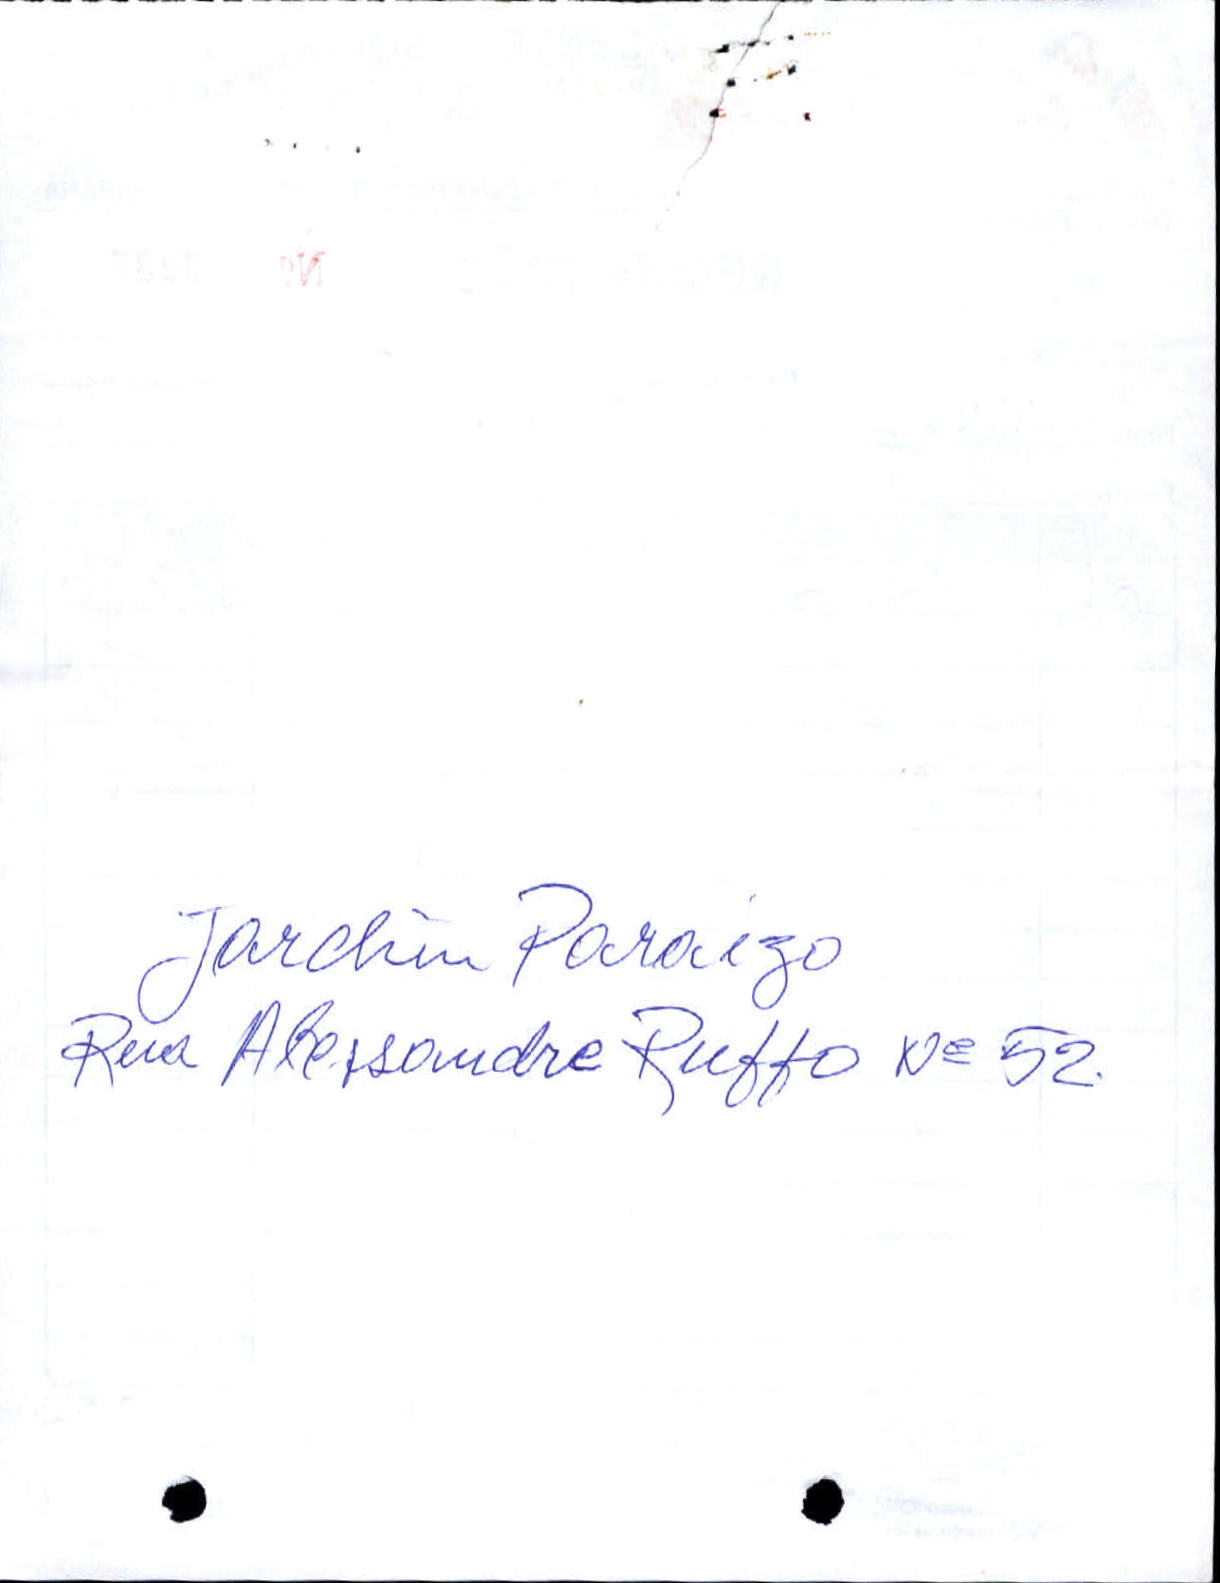 Jardim Paraizo
Rua Alessandre Ruffo Nº 52.